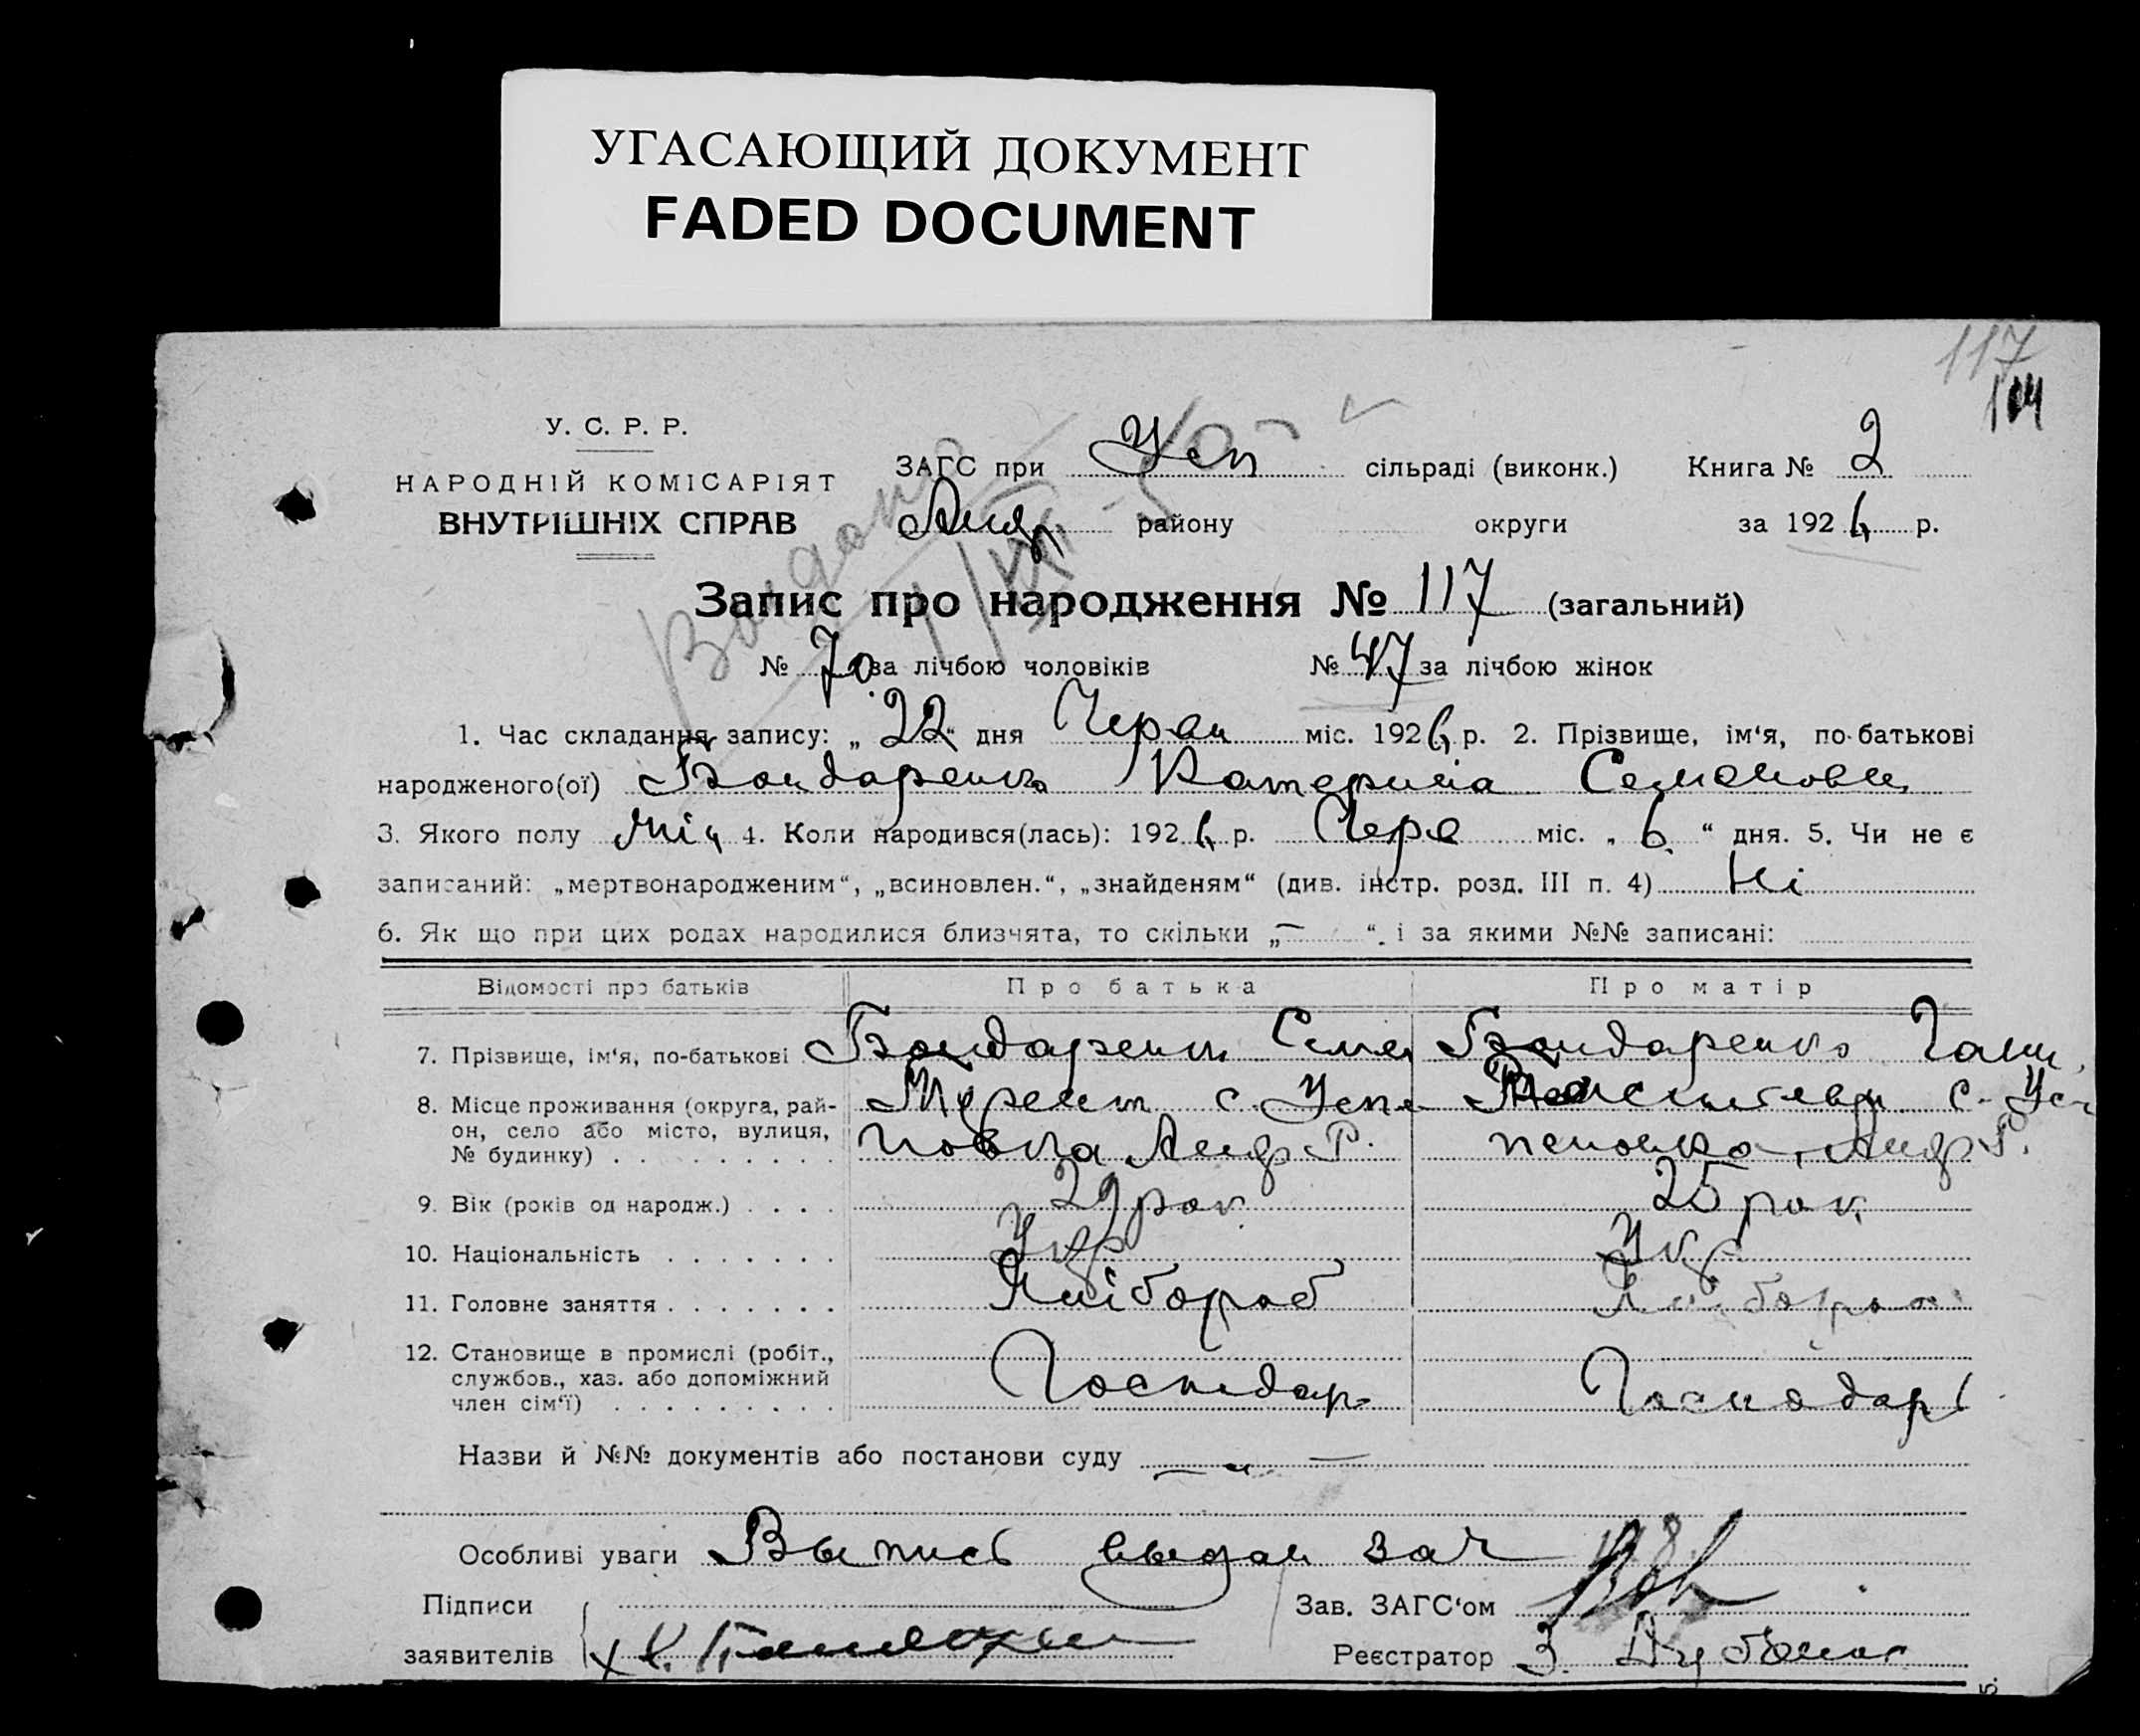 УГАСАЮЩИЙ ДОКУМЕНТ
FADED DOCUMENT
117
У. С. Р. Р.
НАРОДНІЙ КОМІСАРІЯТ
ВНУТРІШНІХ СПРАВ
ЗАГС при Усп сільраді (виконк.) Книга № 2
Андр району округи за 1926 р.
Запис про народження № 117 (загальний)
№ 70 за лічбою чоловіків № 47 за лічбою жінок
1. Час складання запису: „22“ дня Черв міс. 1926 р. 2. Прізвище, ім‘я, по-батькові
народженого(ої) Бондаренко Катерина Семеновн
3. Якого полу жіч 4. Коли народився(лась): 1926 р. Черв міс. „6“ дня. 5. Чи не є
записаний: „мертвонародженим“, „всиновлен.“, „знайденям“ (див. інстр. розд. III п. 4) Ні
6. Як що при цих родах народилися близнята, то скільки „—“ і за якими №№ записані:
Відомості про батьків Про батька Про матір
7. Прізвище, ім‘я, по-батькові Бондаренко Семен Бондаренко Ганн
8. Місце проживання (округа, рай-
он, село або місто, вулиця,
№ будинку) с. Успе с. Усп
новка Андр Р. пеновка, Андр Р.
9. Вік (років од народж.) 29 рок 25 рок
10. Національність Укр Укр
11. Головне заняття Хлібороб Хлібороб
12. Становище в промислі (робіт.,
службов., хаз. або допоміжний
член сім‘ї) Господар Господарь
Назви й №№ документів або постанови суду — „ —
Особливі уваги Выпись выдан за ч
Підписи
заявителів
Зав. ЗАГС‘ом
Реєстратор З.